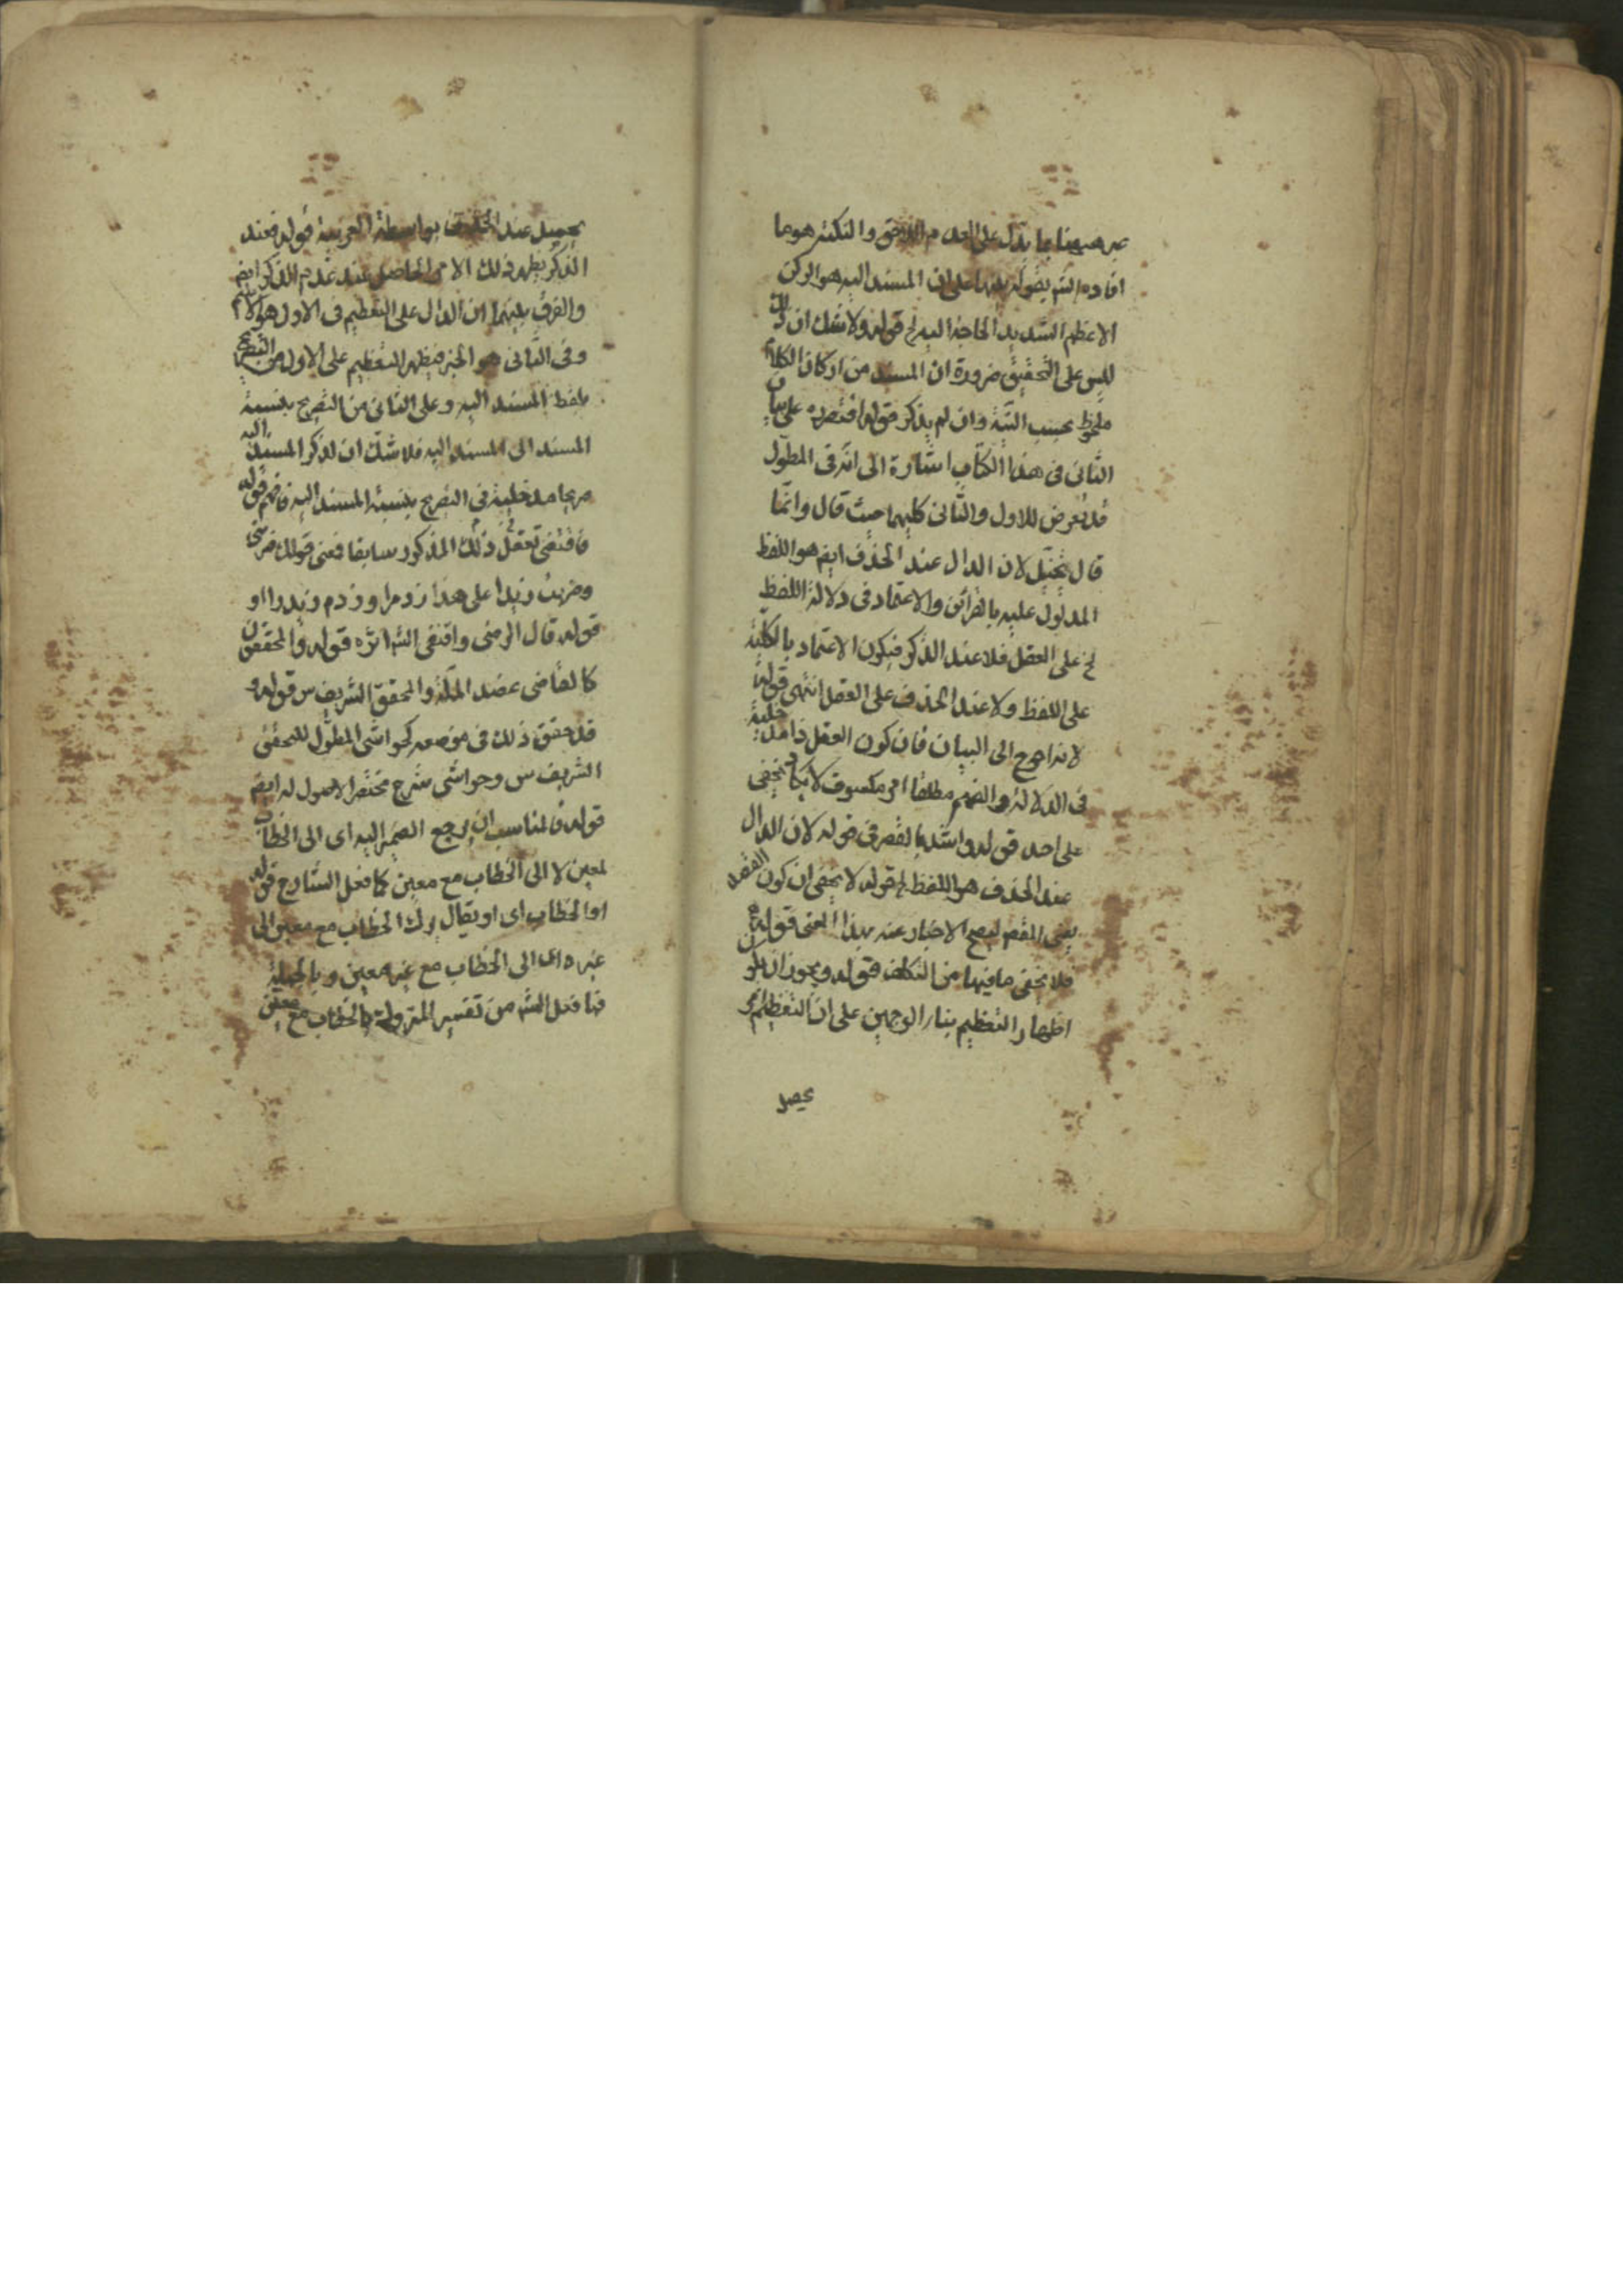 عبر ههنا بما يدل على العدم اللاحق والنكتة هو ما
افاده الشه بقوله تنبيها على ان المسند اليه هو الركن
الاعظم الشديد الحاجة اليه الخ قوله ولا شك ان ذلك
ليس على التحقيق ضرورة ان المسند من اركان الكلام
ملحوظ بحسب النية وان لم يذكر قوله اقتصره على بيان
الثانى فى هذا الكتاب اشارة الى انه فى المطول
قد تعرض للاول والثانى كليهما حيث قال وانما
قال تخييل لان الدال عند الحذف ايضا هو اللفظ
المدلول عليه بالقرائن والاعتماد فى دلالة اللفظ
الخ على العقل فلا عند الذكر فيكون الاعتماد بالكلية
على اللفظ ولا عند الحذف على العقل انتهى قوله
لانه احوج الى البيان فان كون العقل ذا مدخلية
فى الدلالة والفهم مطلقا امر مكشوف لا يكاد يخفى
على احد قوله واشد بالقصر فى قوله لان الدال
عند الحذف هو اللفظ الخ قوله لا يخفى ان كون الفقد
بمعنى ليصح الاخبار عنه بهذا المعنى قوله
فلا يخفى ما فيها من التكلف قوله ويجوز ان يكون
اظهار التعظيم بناء الوجهين على ان التعظيم امر
يحصل
يحصل عند الحذف بواسطة القرينة قوله فعند
الذكر يظهر ذلك الامر الحاصل عند عدم الذكر ايضا
والفرق بينهما ان الدال على التعظيم فى الاول هو الاسم
وفى الثانى هو الخبر فيظهر التعظيم على الاول من التصريح
بلفظ المسند اليه وعلى الثانى من التصريح بنسبة
المسند الى المسند اليه فلا شك ان لذكر المسند اليه
صريحا مدخلية فى التصريح بنسبة المسند اليه فافهم قوله
فاقتضى تعقل ذلك المذكور سابقا فمعنى قولك ضربنى
وضربت زيدا على هذا زد مرا وزدم زيد را او
قوله قال الرضى واقتفى الشه اثره قوله والمحققون
كالقاضى عضد الملة والمحقق الشريف س قوله و
قد حقق ذلك فى موضعه كحواشى المطول للمحقق
الشريف س وحواشى شرح مختصر الاصول له ايضا
قوله فالمناسب ان يرجع الضمير اليه اى الى الخطاب
لمعين لا الى الخطاب مع معين كما فعل الشارح قوله
او الخطاب اى او يقال ترك الخطاب مع معين الى
غيره اى الى الخطاب مع غير معين وبالجملة
فما فعل الشه من تفسير المتروك بالخطاب مع معين